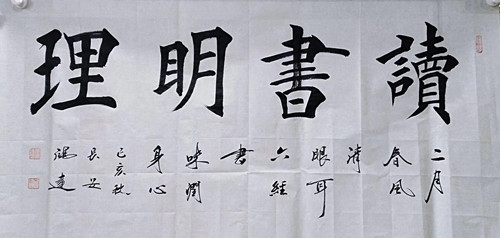 讀書明理
二月
春風
清
眼耳
六經
書
味潤
身心
己亥秋
長安
達